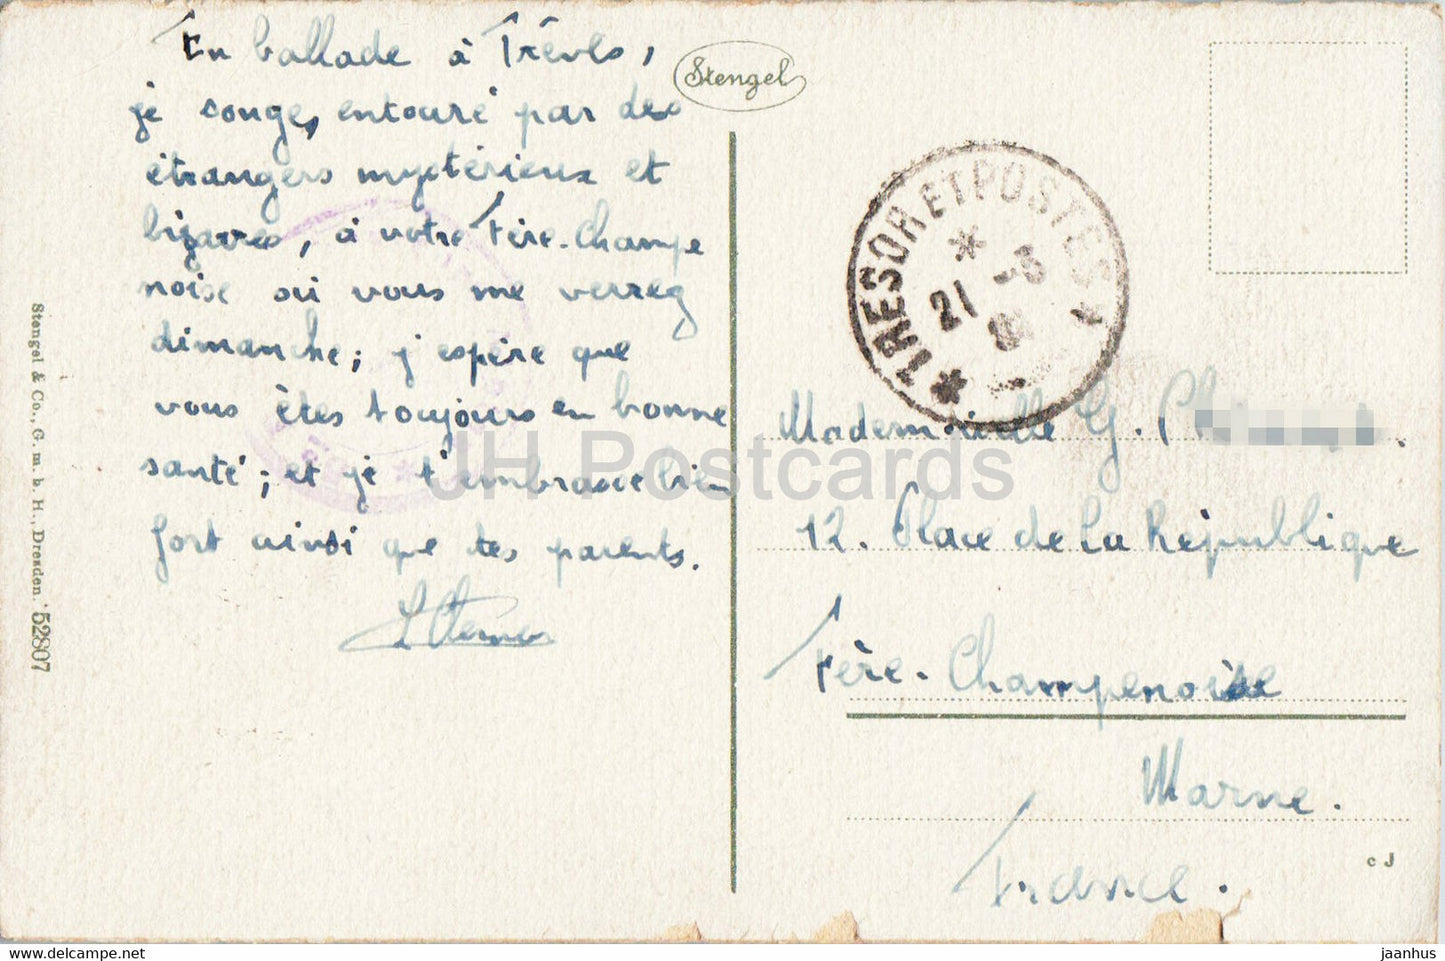 En ballade à Trêves,
je songe, entouré par des
étrangers mystérieux et
bizarres, à votre Fère-Champe
noise où vous me verrez
dimanche; j'espère que
vous êtes toujours en bonne
santé; et je t'embrasse bien
fort ainsi que tes parents.
Stengel
TRESOR ET POSTES
21 -3
Mademoiselle G. P
12. Place de la République
Fère-Champenoise
Marne.
France.
c J
Stengel & Co., G. m. b. H., Dresden 52807
JH Postcards
hipstamp.com/store/jaanhus-postcards
jaanhus